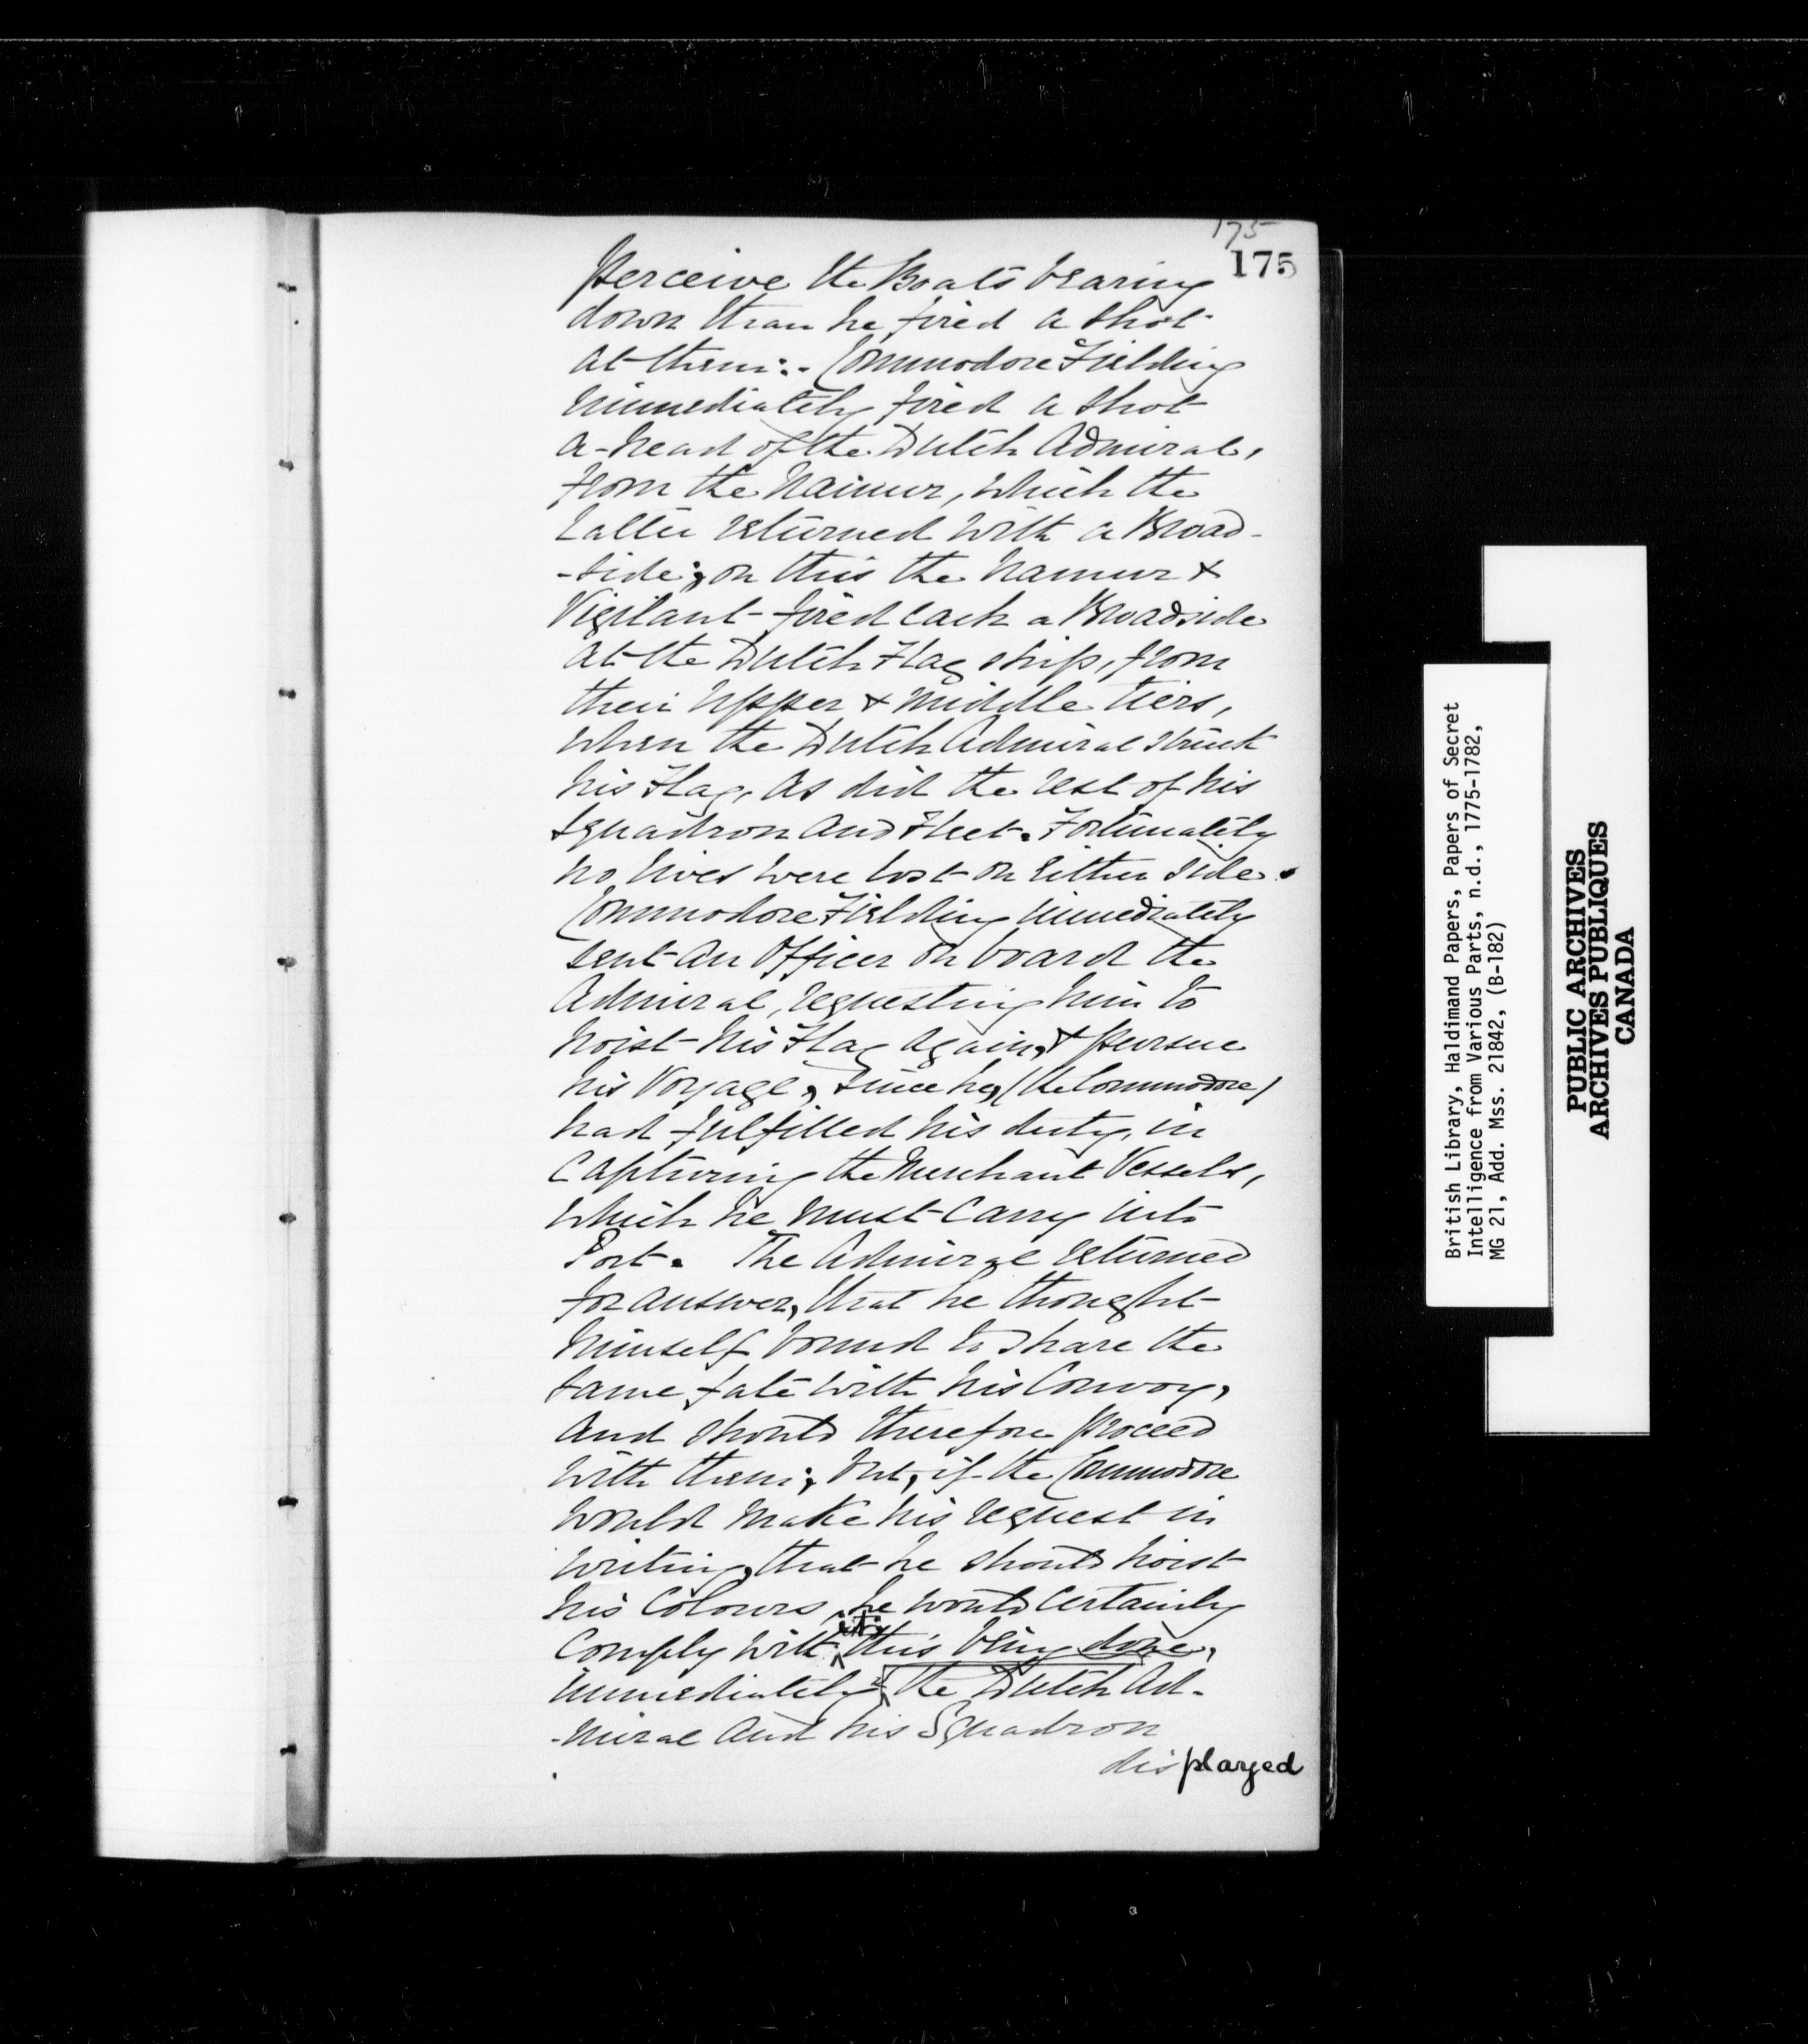 175
175
perceive the Boats bearing
down than he fired a shot
at them:- Commodore Fielding
immediately fired a shot
a-head of the Dutch Admiral,
from the Naimur, which the
latter returned with a Broad-
-side; on this the Namur &
Vigilant fired each a Broadside
at the Dutch Flag ship, from
their Upper & middle tiers,
when the Dutch Admiral struck
his Flag, as did the rest of his
Squadron and Fleet. Fortunately
no lives were lost on either side.
Commodore Fielding immediately
sent an Officer on board the
Admiral, requesting him to
hoist his Flag again, & pursue
his Voyage, since he, (the Commodore)
had fulfilled his duty, in
Capturing the Merchant Vessels,
which he must Carry into
Port. The Admiral returned
for answer, that he thought
himself bound to share the
same fate with his Convoy,
and should therefore proceed
with them; but, if the Commodore
would make his request in
writing, that he should hoist
his Colours, he would certainly
it;
Comply with this being done,
immediately the Dutch Ad-
-miral and his Squadron
displayed
British Library, Haldimand Papers, Papers of Secret
Intelligence from Various Parts, n.d., 1775-1782,
MG 21, Add. Mss. 21842, (B-182)
PUBLIC ARCHIVES
ARCHIVES PUBLIQUES
CANADA